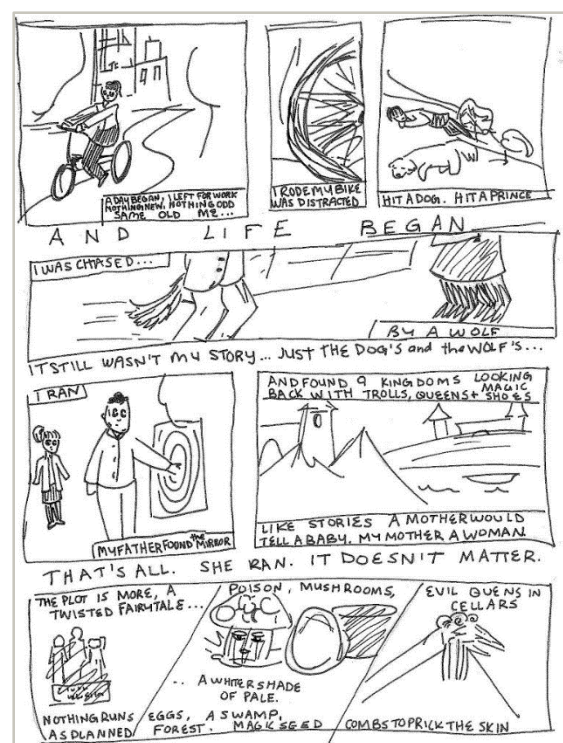 A DAY BEGAN, I LEFT FOR WORK
NOTHING NEW, NOTHING ODD
SAME OLD ME...
I RODE MY BIKE
WAS DISTRACTED
HIT A DOG. HIT A PRINCE
AND LIFE BEGAN
I WAS CHASED...
BY A WOLF
IT STILL WASN'T MY STORY... JUST THE DOG'S and the WOLF'S...
I RAN
MY FATHER FOUND the MIRROR
AND FOUND 9 KINGDOMS LOOKING
BACK WITH TROLLS, QUEENS + MAGIC SHOES
LIKE STORIES A MOTHER WOULD
TELL A BABY. MY MOTHER A WOMAN
THAT'S ALL. SHE RAN. IT DOESN'T MATTER.
THE PLOT IS MORE, A
TWISTED FAIRYTALE...
NOTHING RUNS
AS PLANNED
POISON, MUSHROOMS,
.. A WHITER SHADE
OF PALE.
EGGS, A SWAMP,
FOREST. MAGIC SEED
EVIL QUENS IN
CELLARS
COMBS TO PRICK THE SKIN